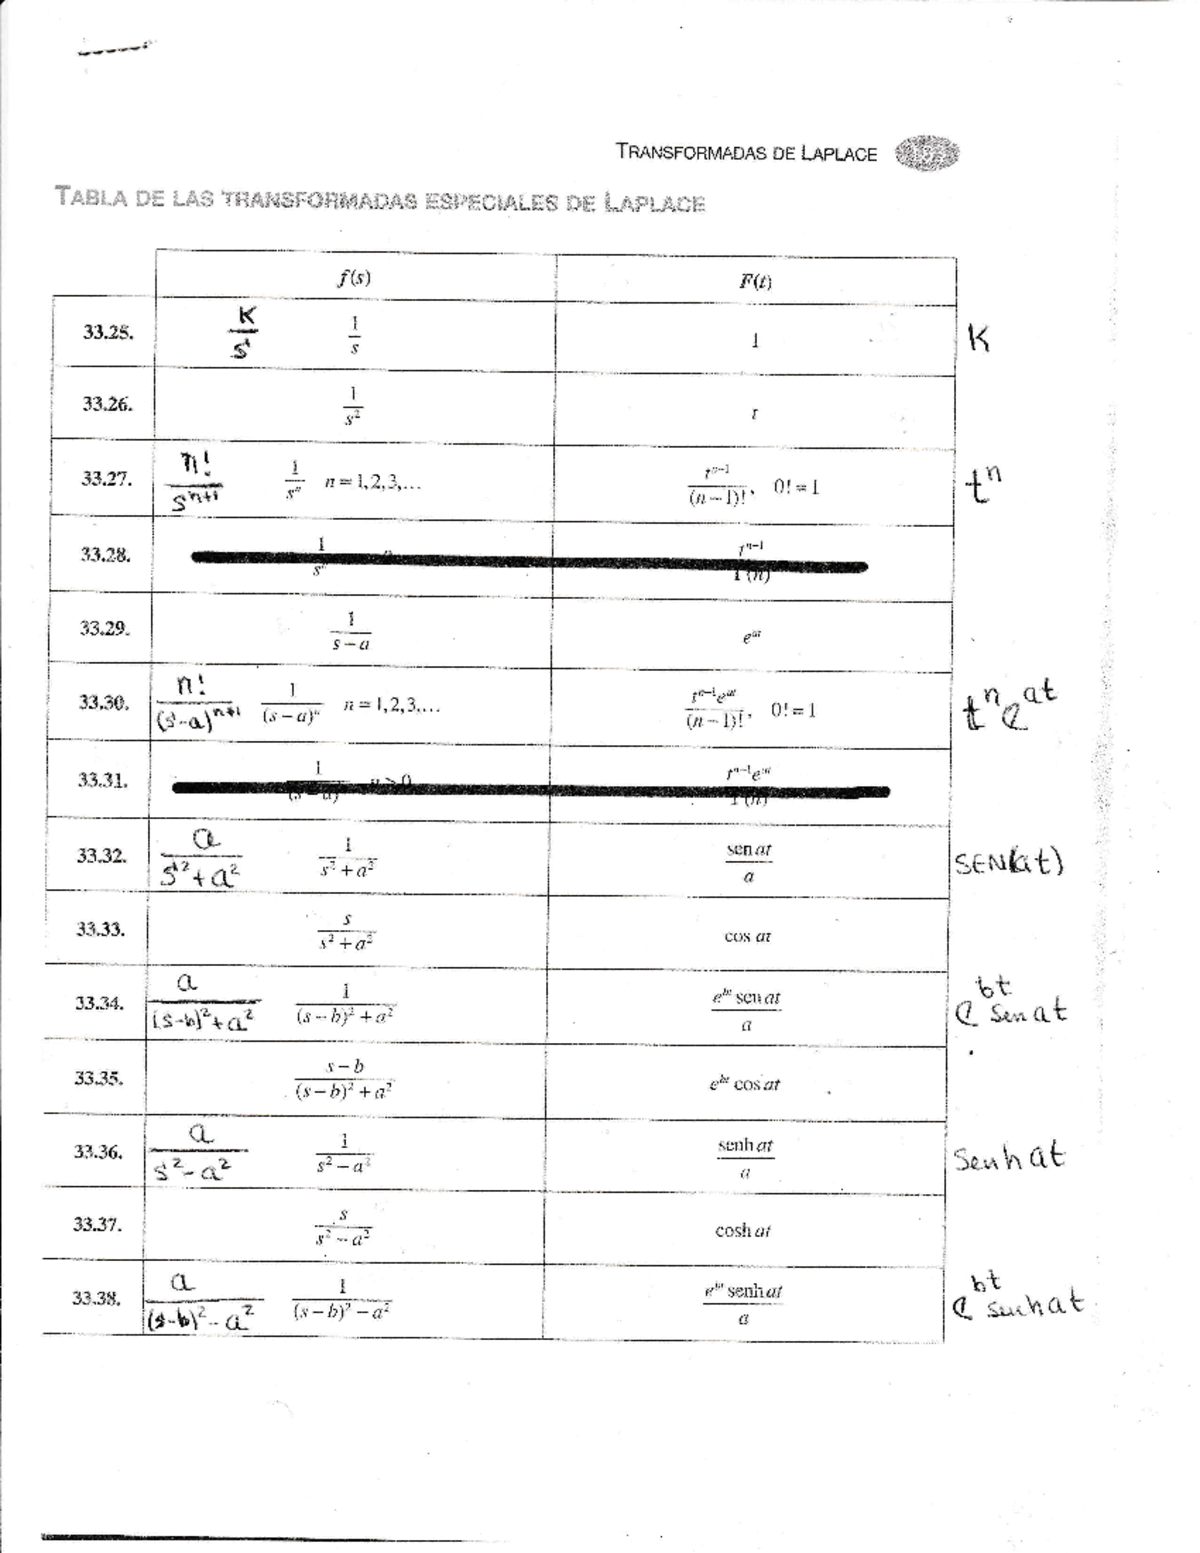 TRANSFORMADAS DE LAPLACE
TABLA DE LAS TRANSFORMADAS ESPECIALES DE LAPLACE
f(s) F(t)
33.25. K/s 1/s 1 K
33.26. 1/s² t
33.27. n!/sⁿ⁺¹ 1/sⁿ n = 1,2,3,... tⁿ⁻¹/(n – 1)!, 0! = 1 tⁿ
33.28. 1/sⁿ tⁿ⁻¹/Γ(n)
33.29. 1/(s – a) eᵃᵗ
33.30. n!/(s-a)ⁿ⁺¹ 1/(s – a)ⁿ n = 1,2,3,... tⁿ⁻¹eᵃᵗ/(n – 1)!, 0! = 1 tⁿeᵃᵗ
33.31. 1/(s – a) n > 0 tⁿ⁻¹eᵃᵗ/Γ(n)
33.32. a/(s²+a²) 1/(s² + a²) sen at/a SEN(at)
33.33. s/(s² + a²) cos at
33.34. a/((s-b)²+a²) 1/((s – b)² + a²) eᵇᵗ sen at/a eᵇᵗ Sen at
33.35. (s – b)/((s – b)² + a²) eᵇᵗ cos at
33.36. a/(s²-a²) 1/(s² – a²) senh at/a Senh at
33.37. s/(s² – a²) cosh at
33.38. a/((s-b)²-a²) 1/((s – b)² – a²) eᵇᵗ senh at/a eᵇᵗ senh at